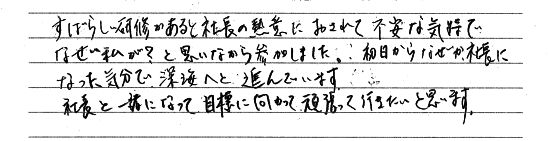 すばらしい研修があると社長の熱意におされて不安な気持で
なぜ私が?と思いながら参加しました。初日からなぜか社長に
なった気分で深海へと進んでいます。
社長と一緒になって目標に向かって頑張って行きたいと思います。